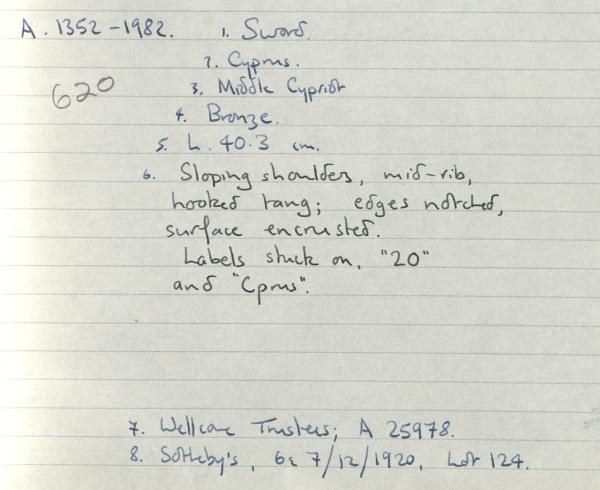 A. 1352-1982. 1. Sword.
2. Cyprus.
620
3. Middle Cypriot
4. Bronze.
5. L. 40.3 cm.
6. Sloping shoulders, mid-rib,
hooked tang; edges notched,
surface encrusted.
Labels stuck on, "20"
and "Cprus".
7. Wellcome Trustees; A 25978.
8. Sotheby's, 7/12/1920, Lot 124.